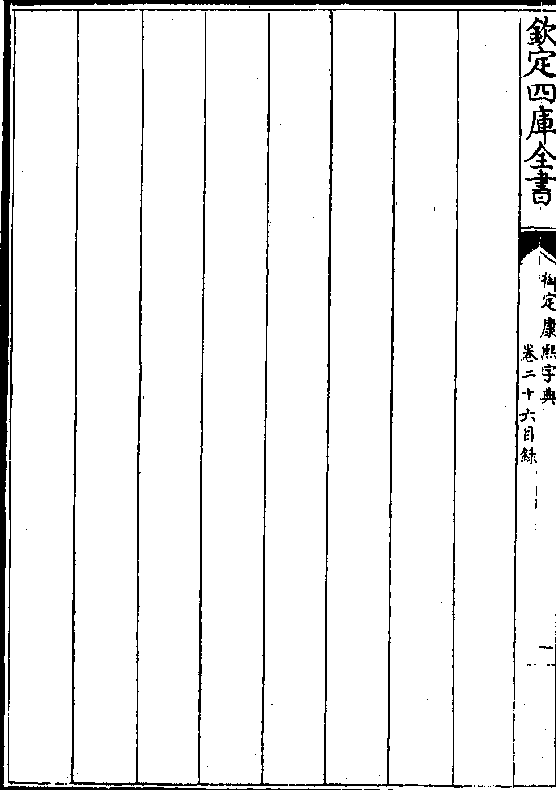 欽定四庫全書
御定康熙字典
卷二十六目錄
一